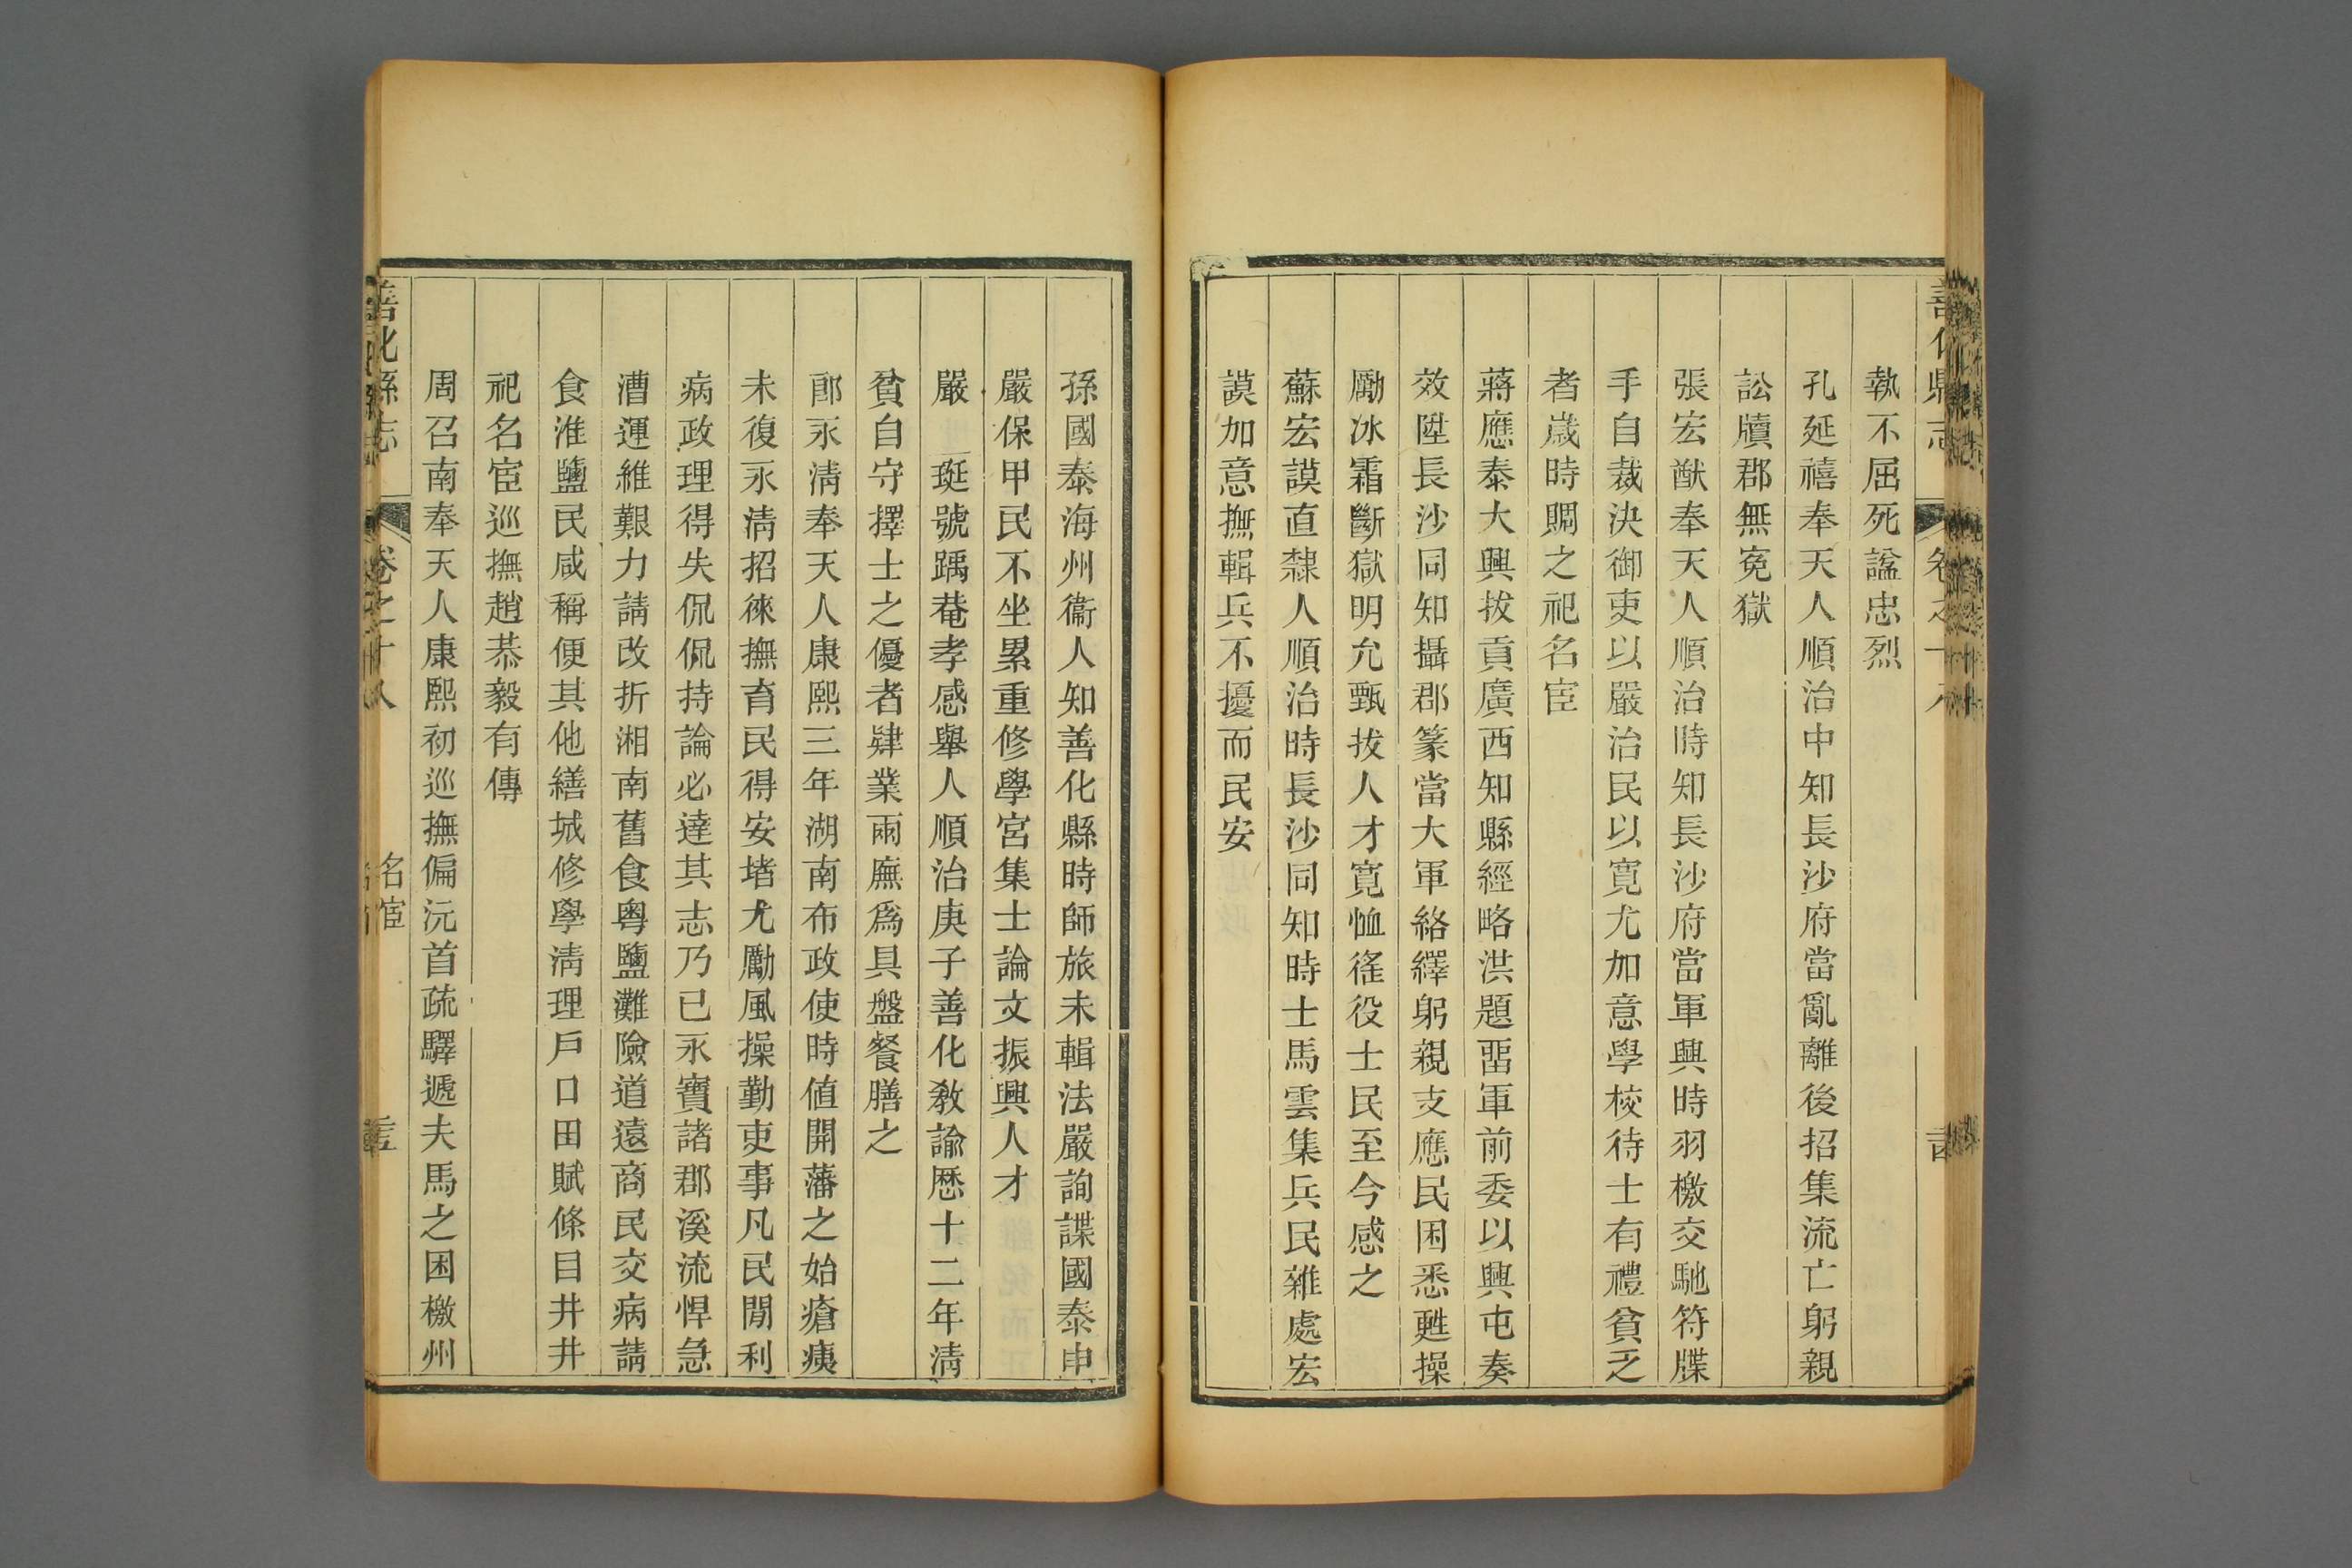 善化縣志
卷之十八
執不屈死諡忠烈
孔延禧奉天人順治中知長沙府當亂離後招集流亡躬親
訟牘郡無冤獄
張宏猷奉天人順治時知長沙府當軍興時羽檄交馳符牒
手自裁決御吏以嚴治民以寬尤加意學校待士有禮貧乏
者歲時賙之祀名宦
蔣應泰大興拔貢廣西知縣經略洪題畱軍前委以興屯奏
效陞長沙同知攝郡篆當大軍絡繹躬親支應民困悉甦操
勵冰霜斷獄明允甄拔人才寬恤徭役士民至今感之
蘇宏謨直隸人順治時長沙同知時士馬雲集兵民雜處宏
謨加意撫輯兵不擾而民安
孫國泰海州衞人知善化縣時師旅未輯法嚴詢諜國泰申
嚴保甲民不坐累重修學宮集士論文振興人才
嚴 珽號踽菴孝感舉人順治庚子善化敎諭歷十二年淸
貧自守擇士之優者肄業兩廡爲具盤餐膳之
郎永淸奉天人康熙三年湖南布政使時値開藩之始瘡痍
未復永淸招徠撫育民得安堵尤勵風操勤吏事凡民間利
病政理得失侃侃持論必達其志乃已永寶諸郡溪流悍急
漕運維艱力請改折湘南舊食粵鹽灘險道遠商民交病請
食淮鹽民咸稱便其他繕城修學淸理戶口田賦條目井井
祀名宦巡撫趙恭毅有傳
周召南奉天人康熙初巡撫偏沅首疏驛遞夫馬之困檄州
善化縣志
卷之十八
名宦